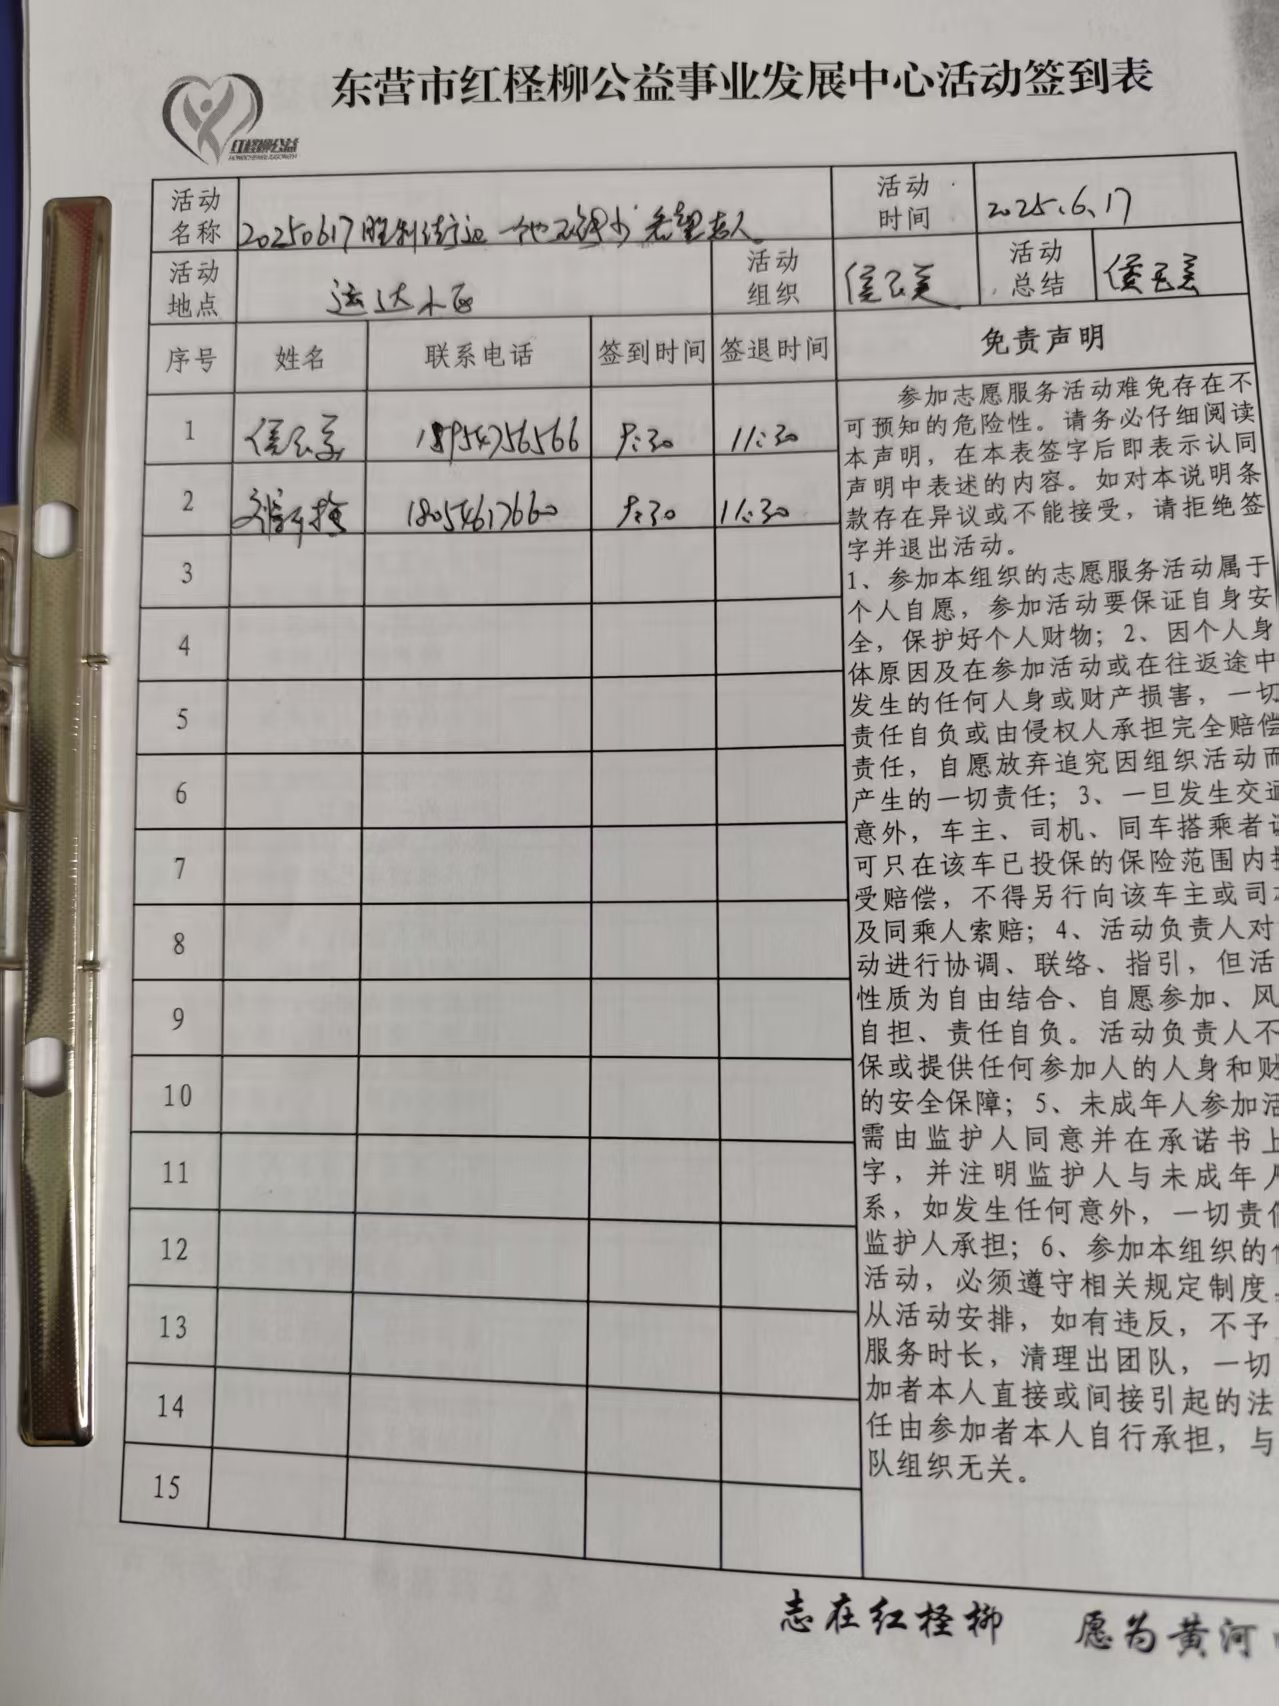 东营市红柽柳公益事业发展中心活动签到表
红柽柳公益
活动名称
20250617胜利街道
看望老人
活动时间
2025.6.17
活动地点
运达小区
活动组织
活动总结
序号 姓名 联系电话 签到时间 签退时间 免责声明
1 18954756566 9:30 11:30
2 18054617660 9:30 11:30
3
4
5
6
7
8
9
10
11
12
13
14
15
参加志愿服务活动难免存在不
可预知的危险性。请务必仔细阅读
本声明，在本表签字后即表示认同
声明中表述的内容。如对本说明条
款存在异议或不能接受，请拒绝签
字并退出活动。
1、参加本组织的志愿服务活动属于
个人自愿，参加活动要保证自身安
全，保护好个人财物；2、因个人身
体原因及在参加活动或在往返途中
发生的任何人身或财产损害，一切
责任自负或由侵权人承担完全赔偿
责任，自愿放弃追究因组织活动而
产生的一切责任；3、一旦发生交通
意外，车主、司机、同车搭乘者
可只在该车已投保的保险范围内
受赔偿，不得另行向该车主或司
及同乘人索赔；4、活动负责人对
动进行协调、联络、指引，但活
性质为自由结合、自愿参加、风
自担、责任自负。活动负责人不
保或提供任何参加人的人身和财
的安全保障；5、未成年人参加活
需由监护人同意并在承诺书上
字，并注明监护人与未成年人
系，如发生任何意外，一切责任
监护人承担；6、参加本组织的
活动，必须遵守相关规定制度，
从活动安排，如有违反，不予
服务时长，清理出团队，一切
加者本人直接或间接引起的法
任由参加者本人自行承担，与
队组织无关。
志在红柽柳 愿为黄河